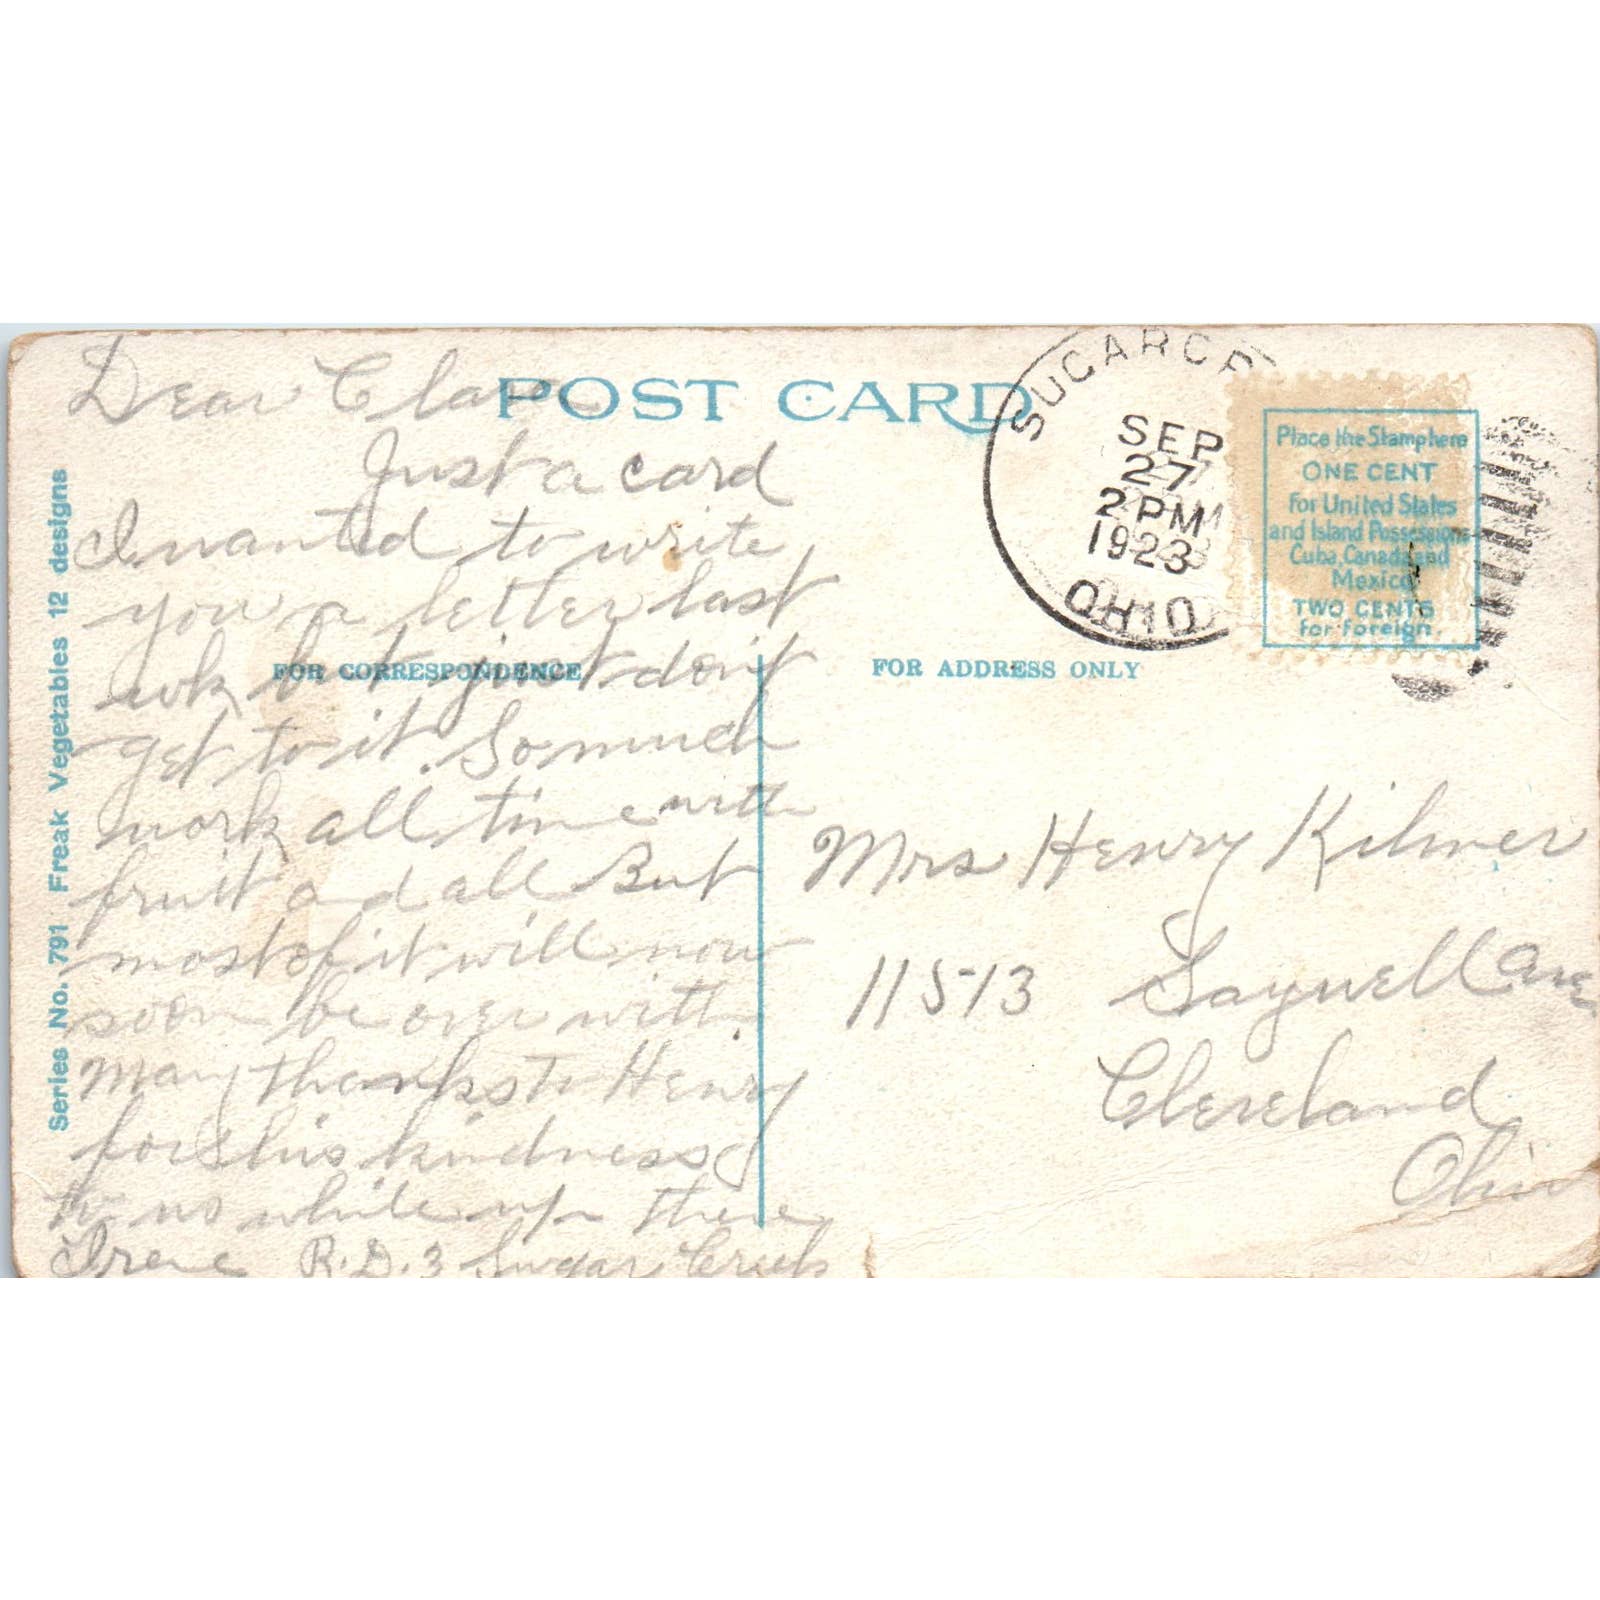 POST CARD
Dear Clara
Just a card
I wanted to write
you a letter last
wk but just don't
get to it. So much
work all time with
fruit and all But
most of it will now
soon be over with.
Many thanks to Henry
for his kindness
to us while up there
Irene R.D.3 Sugar Creek
FOR CORRESPONDENCE
FOR ADDRESS ONLY
Series No. 791 Freak Vegetables 12 designs
SUGARCR
SEP
27
2 PM
1923
OHIO
Place the Stamp here
ONE CENT
For United States
and Island Possessions
Cuba, Canada and
Mexico
TWO CENTS
for Foreign.
Mrs Henry Kilmer
11513 Saywell Ave
Cleveland
Ohio